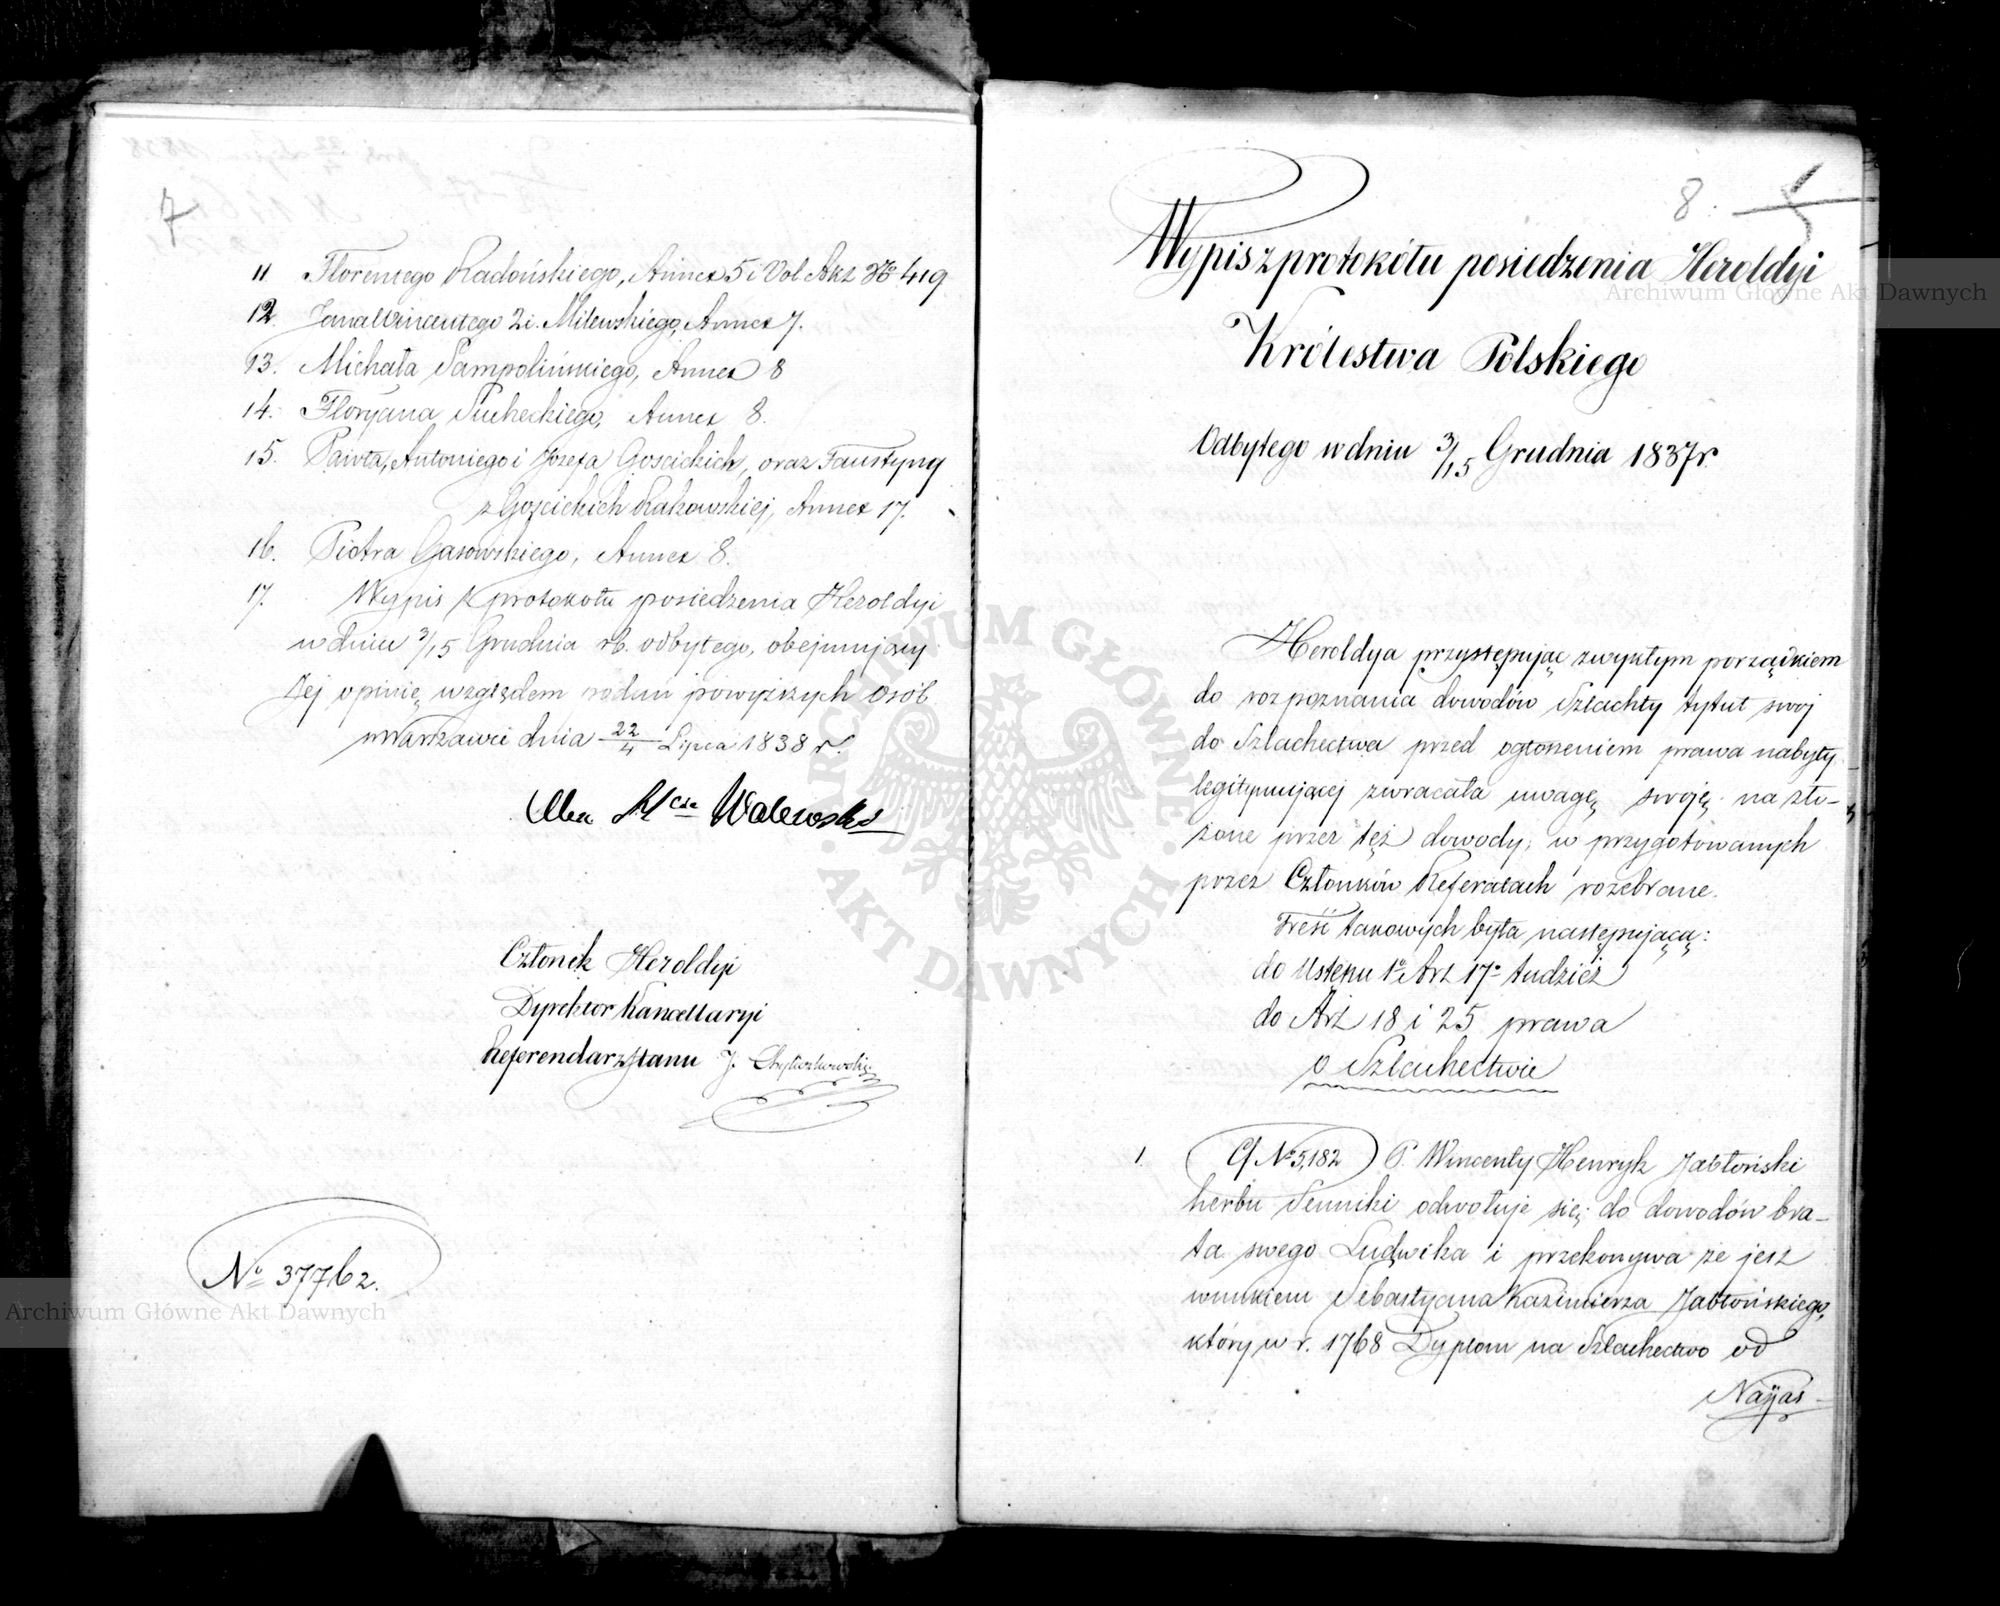 7
11 Florentego Radońskiego, Annex 5 i Vol Akt No 419
12. Jana Wincentego 2 i. Milewskiego, Annex 7.
13. Michała Sampolińskiego, Annex 8
14. Floryana Sucheckiego, Annex 8.
15. Pawła, Antoniego i Józefa Gościckich, oraz Faustyny
z Gościckich Rakowskiej, Annex 17.
16. Piotra Gasowskiego, Annex 8.
17. Wypis z protokołu posiedzenia Heroldyi
w dniu 3/15 Grudnia rb. odbytego, obejmujący
Jej opinię względem rodun powyższych osób
w Warszawie dnia 22/4 Lipca 1838 r.
Walewski
Członek Heroldyi
Dyrektor Kancellaryi
Referendarz Stanu J.
No 37762.
8.
Wypis z protokółu posiedzenia Heroldyi
Królestwa Polskiego
Odbytego w dniu 3/15 Grudnia 1837 r.
Heroldya przystępując zwykłym porządkiem
do rozpoznania dowodów Szlachty tytuł swój
do Szlachectwa przed ogłoszeniem prawa nabyty
legitymującej zwracała uwagę swoję na zło-
żone przez tęż dowody, w przygotowanych
przez Członków Referatach rozebrane.
Treść takowych była następująca:
do Ustępu 1o Art 17o tudzież
do Art 18 i 25 prawa
o Szlachectwie
1. No 5,182 P. Wincenty Henryk Jabłoński
herbu odwołuje się do dowodów bra-
ta swego Ludwika i przekonywa że jest
wnukiem Sebastyana Kazimierza Jabłońskiego,
który w r. 1768 Dyplom na Szlachectwo od
Nayjas-
Archiwum Główne Akt Dawnych
Archiwum Główne Akt Dawnych
ARCHIWUM GŁÓWNE · AKT DAWNYCH ·